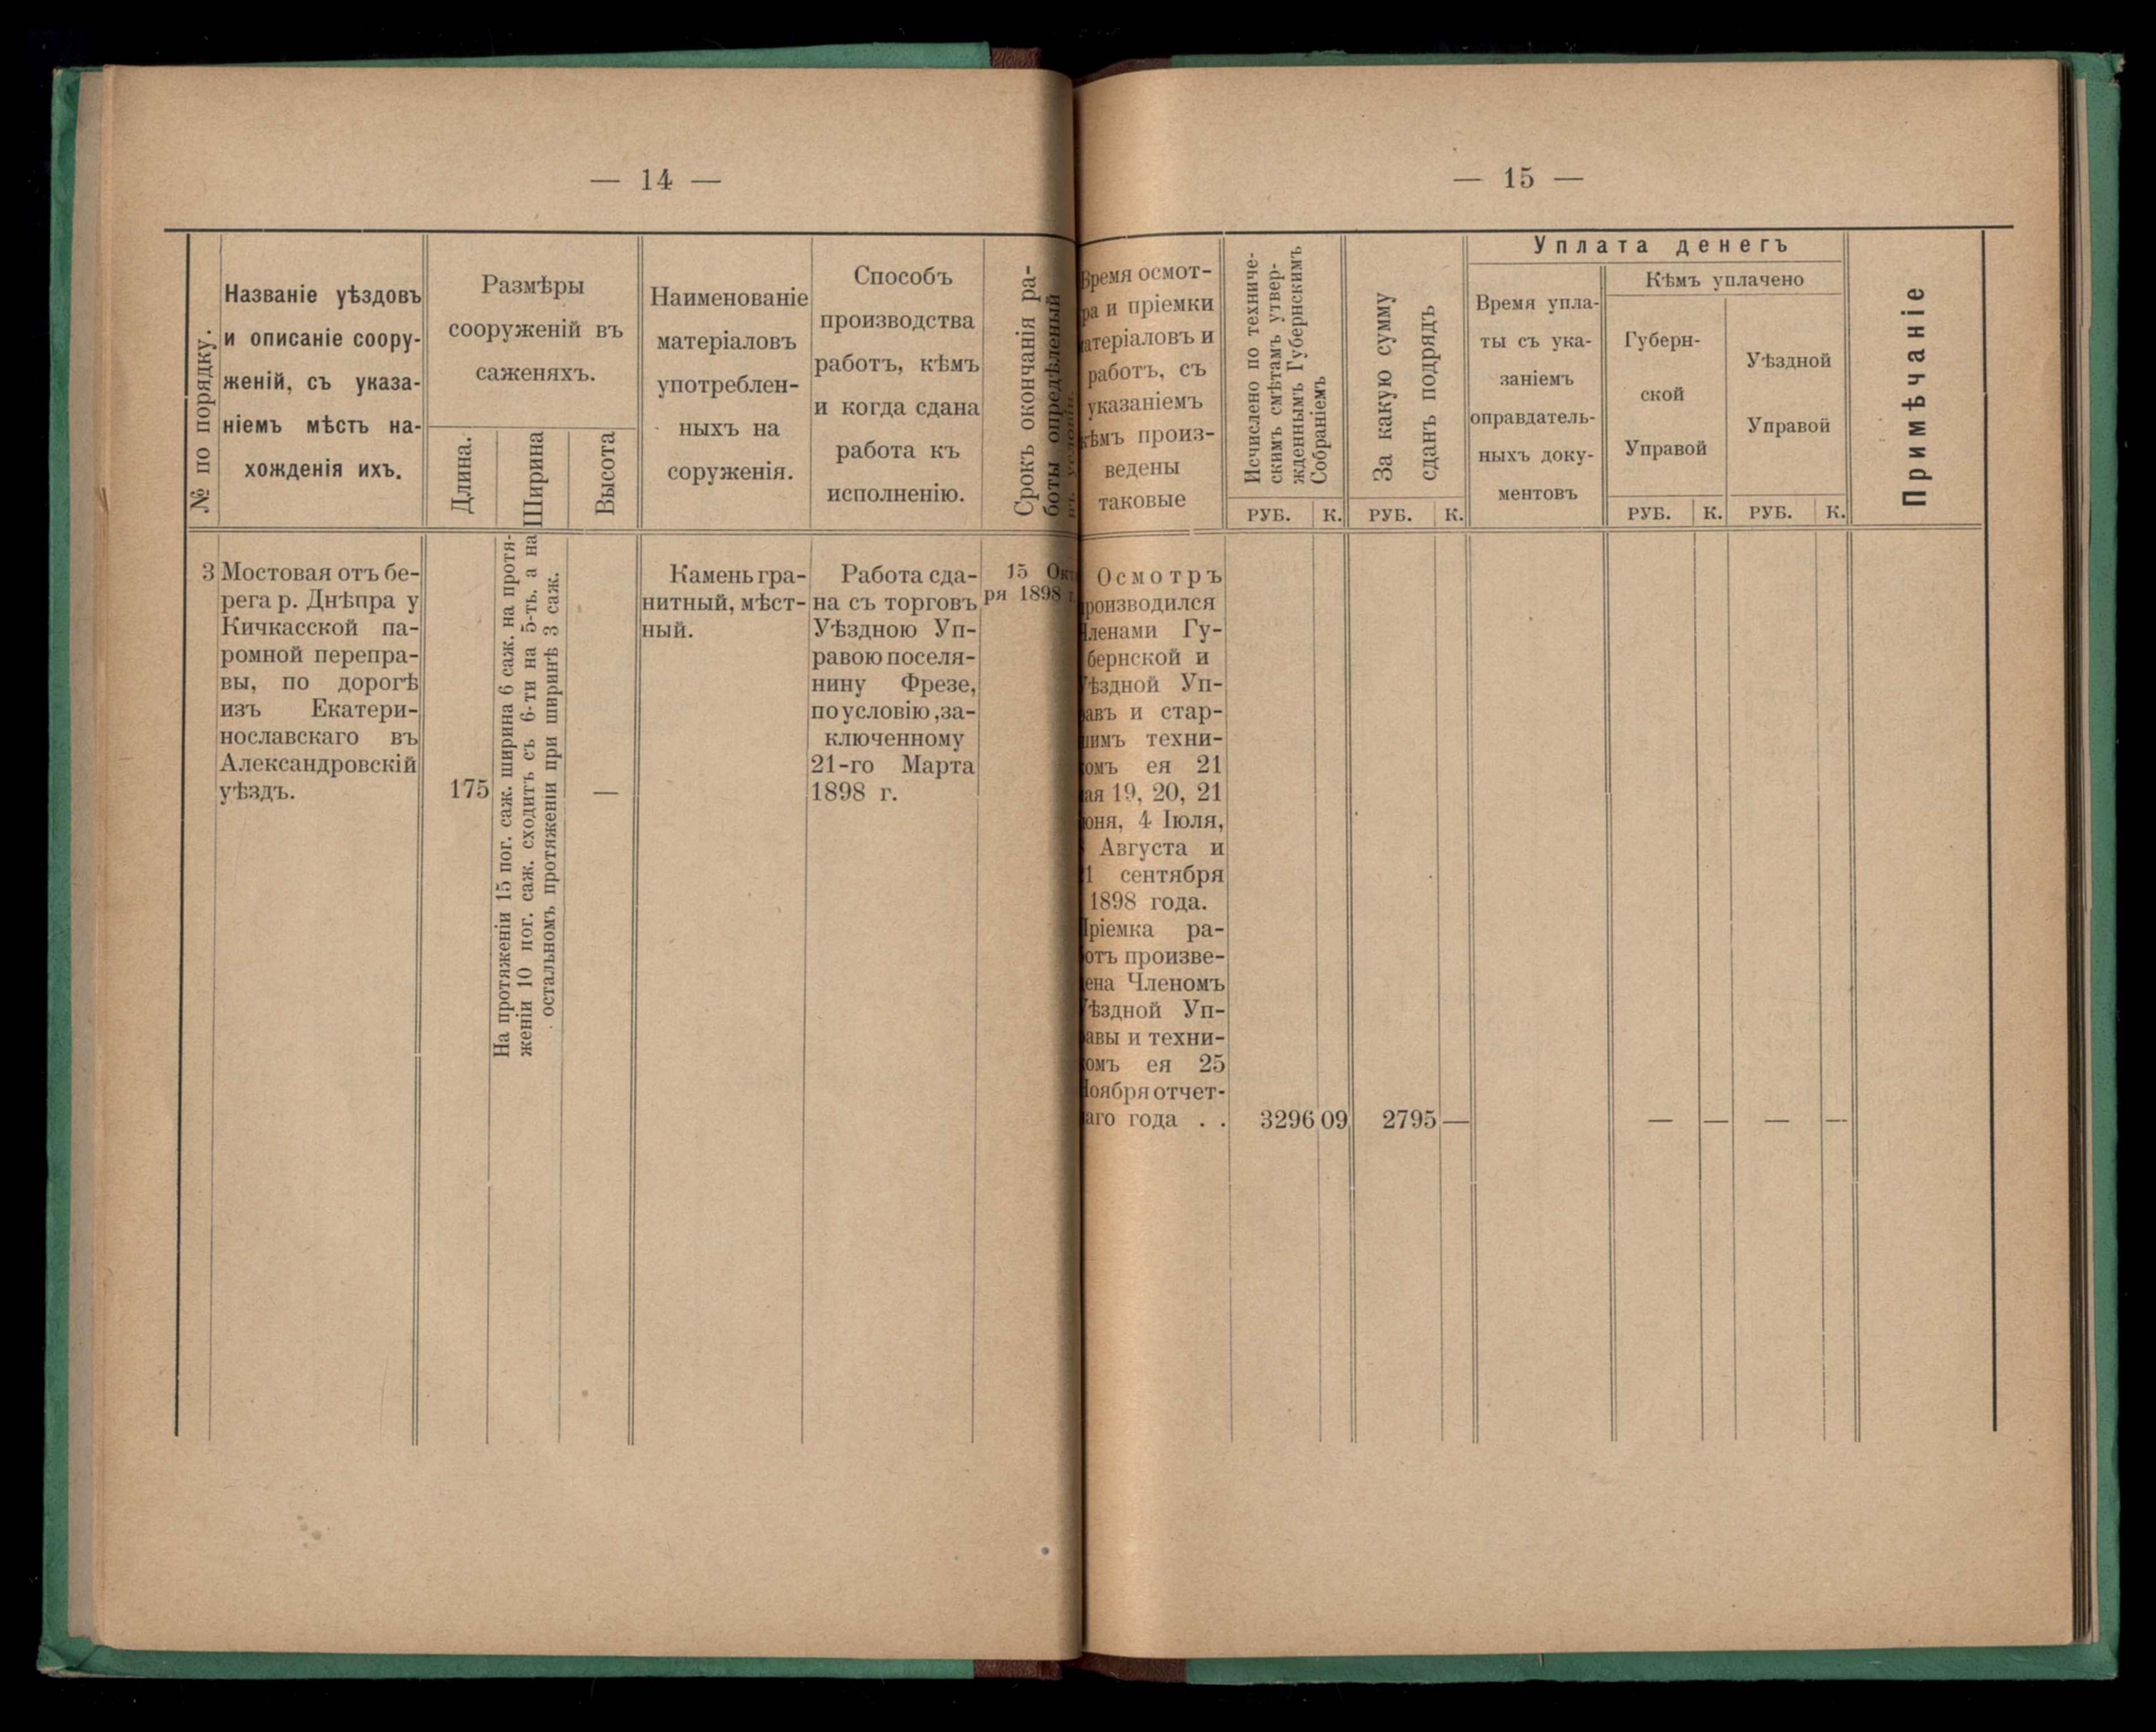 — 14 —
№ по порядку.
Названіе уѣздовъ
и описаніе соору-
женій, съ указа-
ніемъ мѣстъ на-
хожденія ихъ.
Размѣры
сооруженій въ
саженяхъ.
Длина.
Ширина
Высота
Наименованіе
матеріаловъ
употреблен-
ныхъ на
соруженія.
Способъ
производства
работъ, кѣмъ
и когда сдана
работа къ
исполненію.
Срокъ окончанія ра-
боты опредѣленый
3
Мостовая отъ бе-
рега р. Днѣпра у
Кичкасской па-
ромной перепра-
вы, по дорогѣ
изъ Екатери-
нославскаго въ
Александровскій
уѣздъ.
175
На протяженіи 15 пог. саж. ширина 6 саж. на протя-
женіи 10 пог. саж. сходитъ съ 6-ти на 5-ть. а на
остальномъ протяженіи при ширинѣ 3 саж.
—
Камень гра-
нитный, мѣст-
ный.
Работа сда-
на съ торговъ
Уѣздною Уп-
равою поселя-
нину Фрезе,
по условію, за-
ключенному
21-го Марта
1898 г.
15
ря 1898 г.
— 15 —
Время осмот-
ра и пріемки
матеріаловъ и
работъ, съ
указаніемъ
кѣмъ произ-
ведены
таковые
Исчислено по техниче-
скимъ смѣтамъ утвер-
жденнымъ Губернскимъ
Собраніемъ
РУБ. К.
За какую сумму
сданъ подрядъ
РУБ. К.
Уплата денегъ
Время упла-
ты съ ука-
заніемъ
оправдатель-
ныхъ доку-
ментовъ
Кѣмъ уплачено
Губерн-
ской
Управой
РУБ. К.
Уѣздной
Управой
РУБ. К.
Примѣчаніе
Осмотръ
производился
Членами Гу-
бернской и
Уѣздной Уп-
равъ и стар-
шимъ техни-
комъ ея 21
мая 19, 20, 21
юня, 4 Іюля,
Августа и
сентября
1898 года.
Пріемка ра-
ботъ произве-
дена Членомъ
Уѣздной Уп-
равы и техни-
комъ ея 25
Ноября отчет-
наго года . .
3296 09
2795 —
— — — —